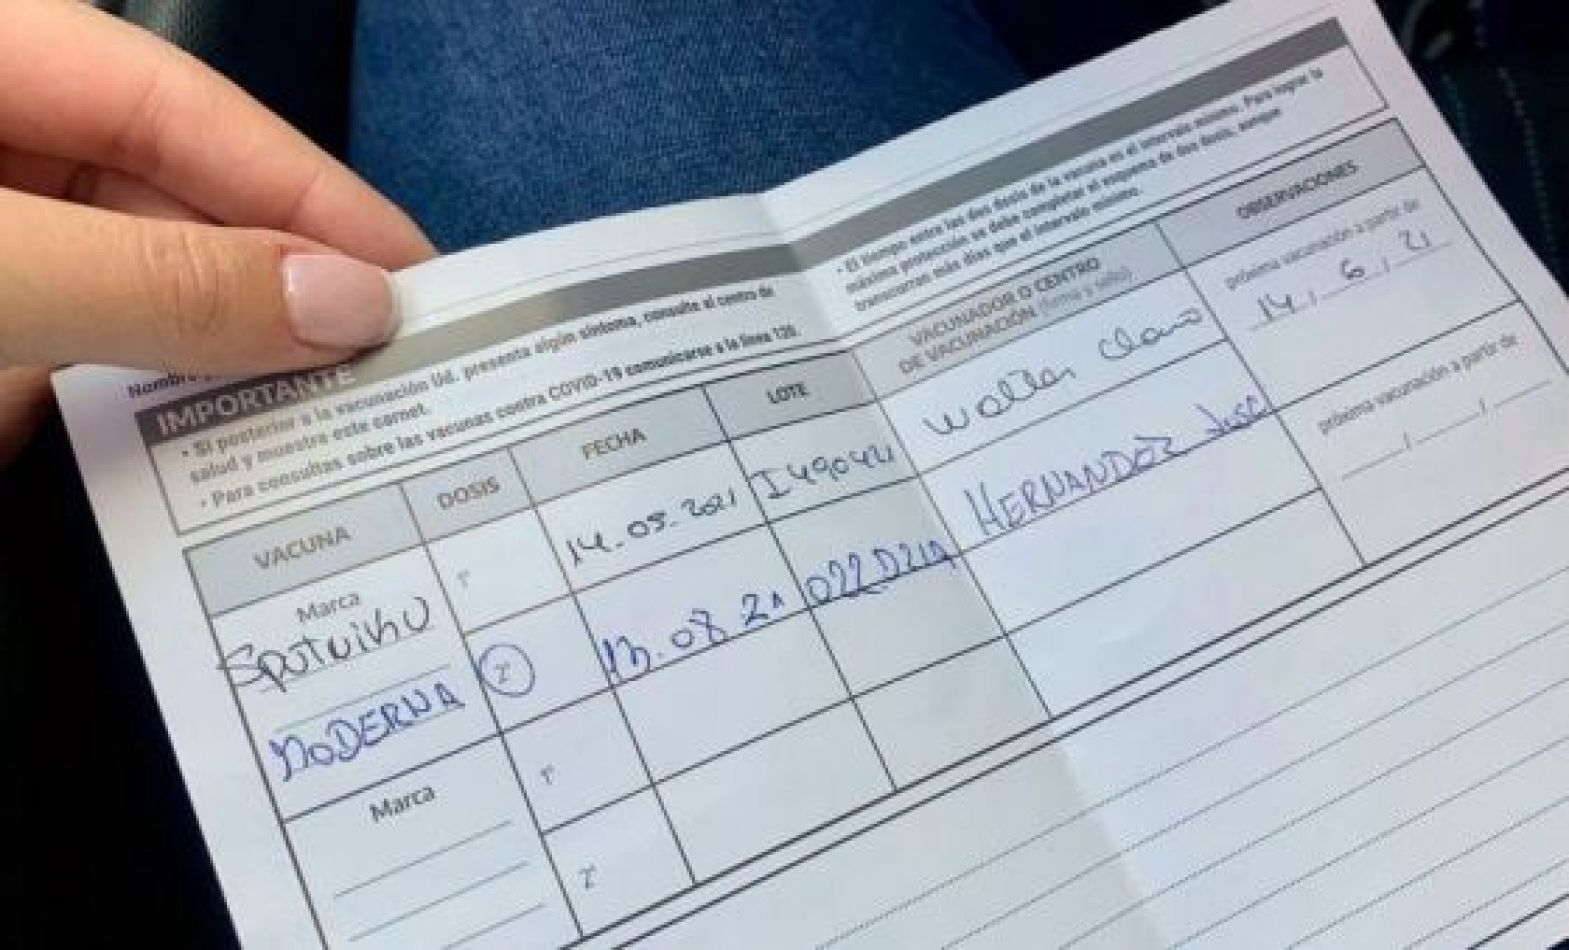 Nombre
IMPORTANTE
• Si posterior a la vacunación Ud. presenta algún síntoma, consulte al centro de
salud y muestre este carnet.
• Para consultas sobre las vacunas contra COVID-19 comunicarse a la línea 120.
• El tiempo entre las dos dosis de la vacuna es el intervalo mínimo. Para lograr la
máxima protección se debe completar el esquema de dos dosis, aunque
transcurran más días que el intervalo mínimo.
VACUNA DOSIS FECHA LOTE VACUNADOR O CENTRO DE VACUNACIÓN (firma y sello) OBSERVACIONES
Marca
1° 14.05.2021 I490421 Walter próxima vacunación a partir de
14 / 6 / 21
MODERNA 2° 13.08 21 022D21A HERNANDEZ José próxima vacunación a partir de
/ /
Marca
1°
2°